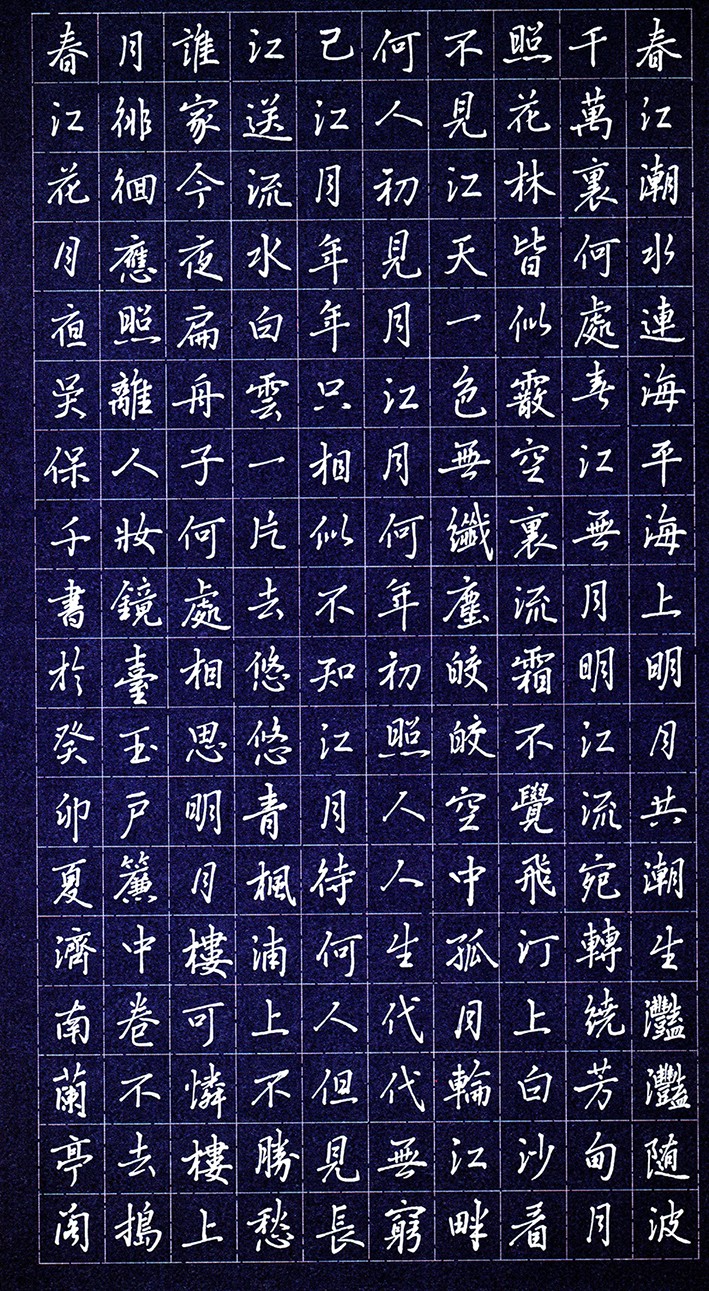 春江潮水連海平海上明月共潮生灩灩随波
千萬裏何處春江無月明江流宛轉繞芳甸月
照花林皆似霰空裏流霜不覺飛汀上白沙看
不見江天一色無纖塵皎皎空中孤月輪江畔
何人初見月江月何年初照人人生代代無窮
已江月年年只相似不知江月待何人但見長
江送流水白雲一片去悠悠青楓浦上不勝愁
誰家今夜扁舟子何處相思明月樓可憐樓上
月徘徊應照離人妝鏡臺玉戶簾中卷不去搗
春江花月夜吳保千書於癸卯夏濟南蘭亭阁